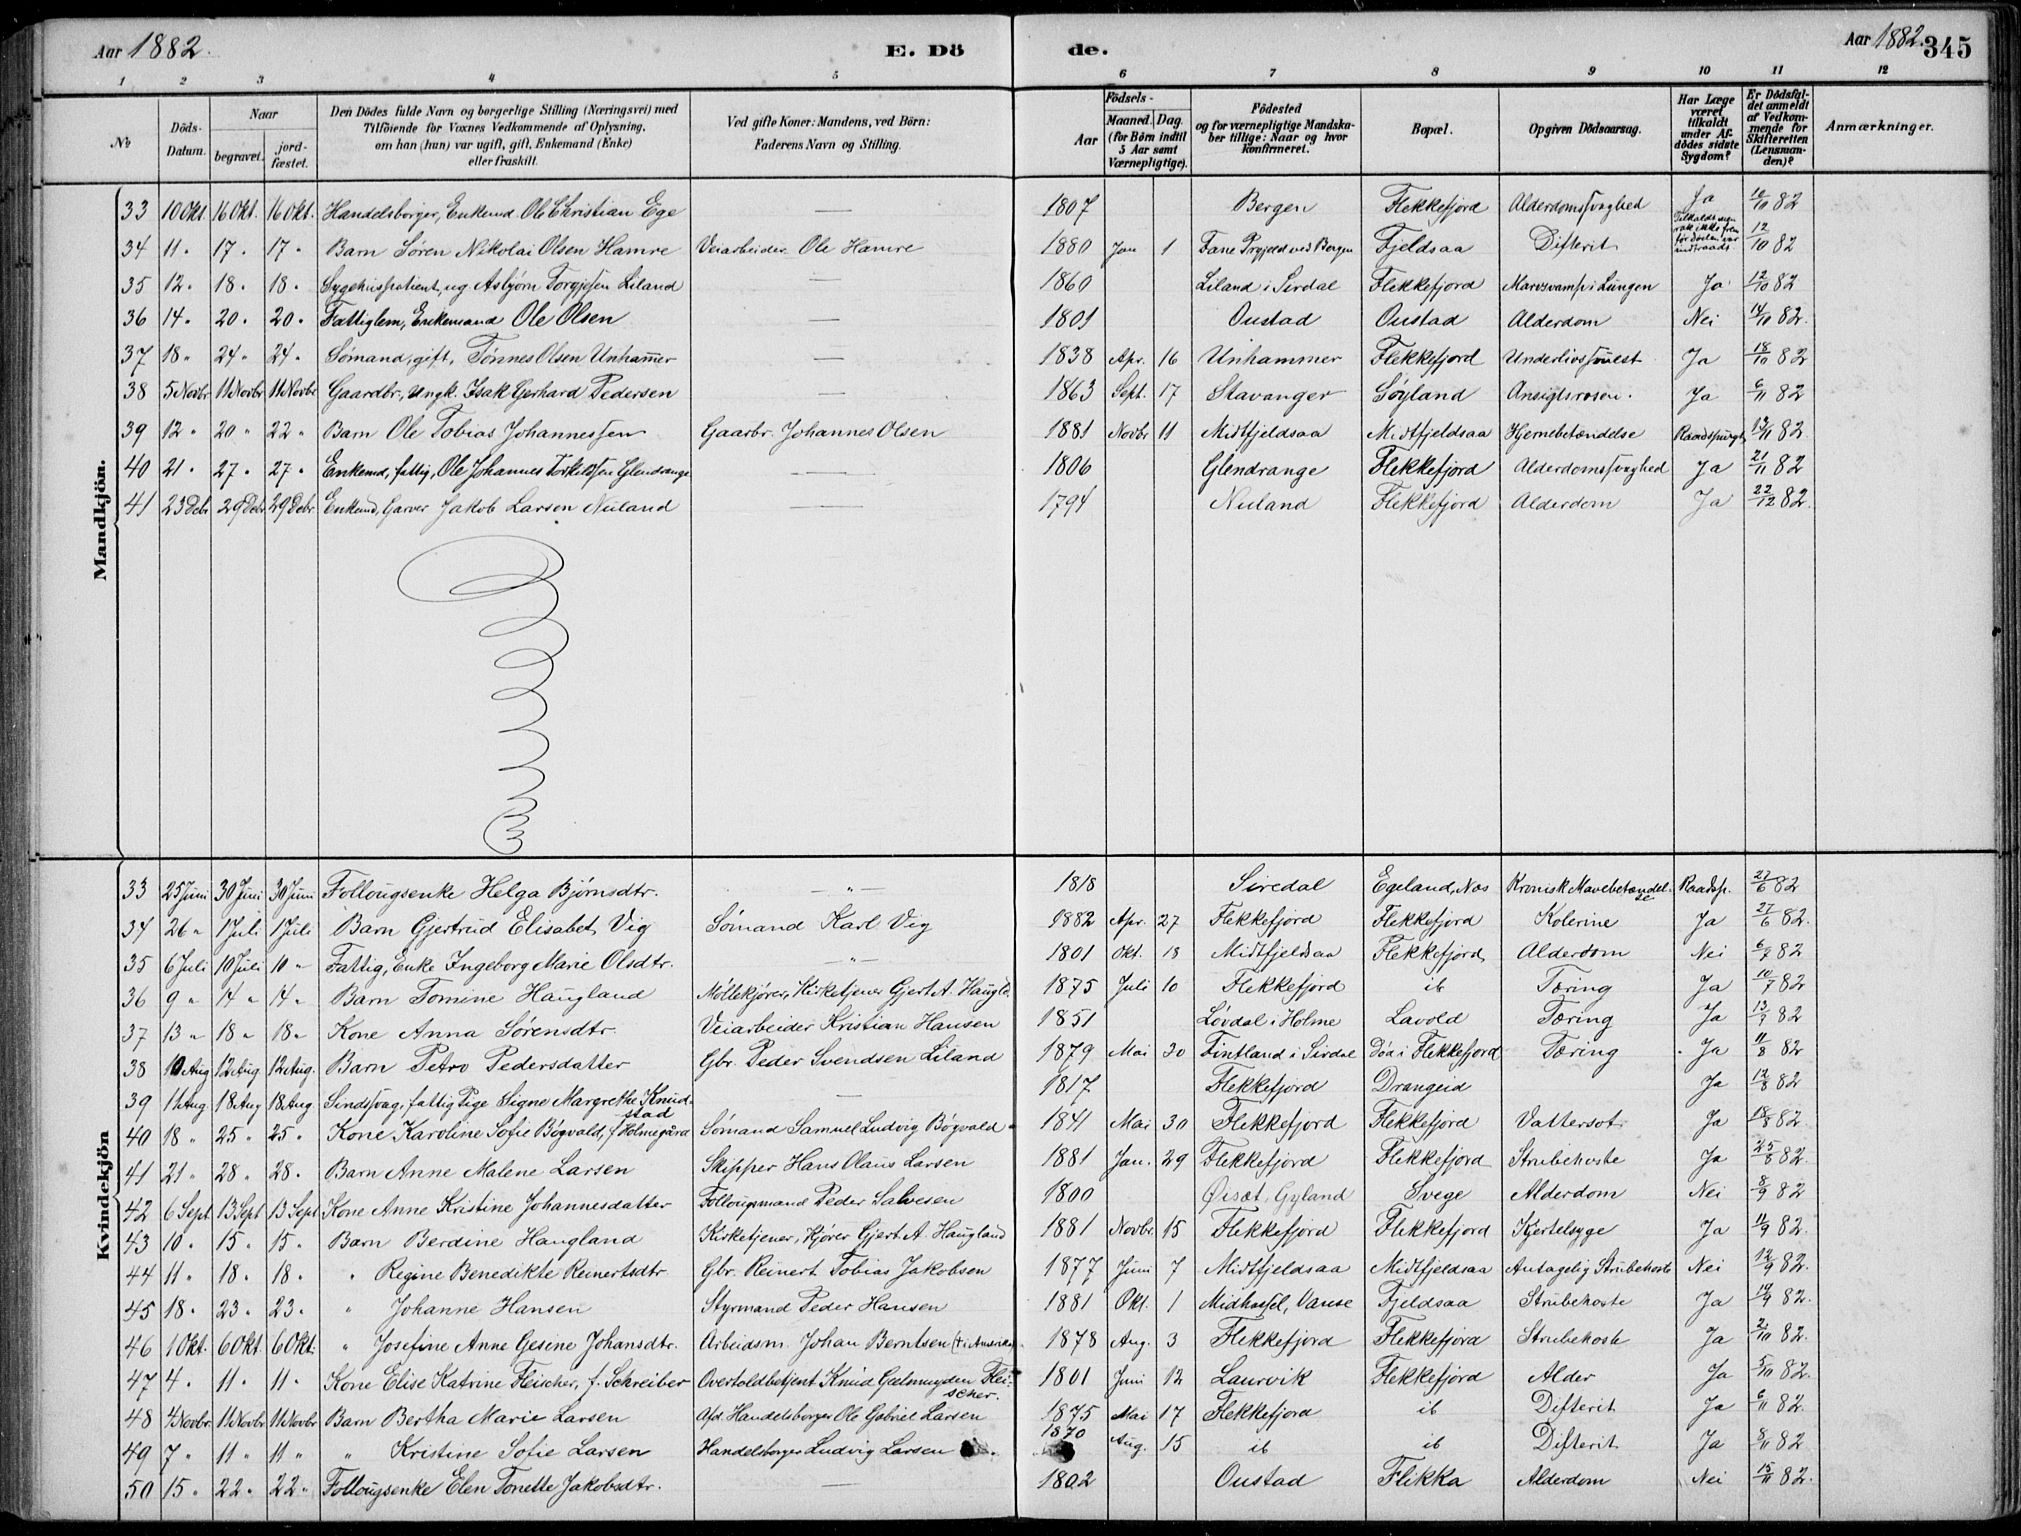 Aar 1882. E. Dö de. Aar 1882. 345
1 2 3 4 5 6 7 8 9 10 11 12
№ Döds-Datum. Naar begravet. jord-fæstet. Den Dödes fulde Navn og borgerlige Stilling (Næringsvei) med Tilföiende for Voxnes Vedkommende af Oplysning, om han (hun) var ugift, gift, Enkemand (Enke) eller fraskilt. Ved gifte Koner: Mandens, ved Börn: Faderens Navn og Stilling. Födsels- Aar Maaned. Dag. (for Börn indtil 5 Aar samt Værnepligtige). Födested og for værnepligtige Mandskaber tillige: Naar og hvor konfirmeret. Bopæl. Opgiven Dödsaarsag. Har Læge været tilkaldt under Afdödes sidste Sygdom? Er Dödsfaldet anmeldt af Vedkommende for Skifteretten (Lensmanden)? Anmærkninger.
Mandkjön.
33 10 Okt. 16 Okt. 16 Okt. Handelsborger, Enkemd. Ole Christian Ege — 1807 Bergen Flekkefjord Alderdomssvaghed Ja 12/10 82
34 11 " 17 " 17 " Barn Søren Nikolai Olsen Hamre Veiarbeider Ole Hamre 1880 Jan 1 Fane Prgjeld ved Bergen Fjeldsaa Difterit 12/10 82
35 12 " 18 " 18 " Sygehuspatient, ug. Asbjørn Torgjesen Liland — 1860 Liland i Sirdal Flekkefjord i Lungen Ja 12/10 82
36 14 " 20 " 20 " Fattiglem, Enkemand Ole Olsen — 1801 Oustad Oustad Alderdom Nei 14/10 82.
37 18 " 24 " 24 " Sømand, gift, Tønnes Olsen Unhammer — 1838 Apr. 16 Unhammer Flekkefjord Underlivssvulst Ja 18/10 82
38 5 Novbr 11 Novbr 11 Novbr Gaardbr., Ungk. Isak Gerhard Pedersen — 1863 Sept. 17 Stavanger Søyland Ansigtsrosen. Ja 6/11 82
39 12 " 20 " 22 " Barn Ole Tobias Johannessen Gaarbr. Johannes Olsen 1881 Novbr 11 Midtfjeldsaa Midtfjeldsaa Hjernebetændelse Raadspurgt 13/11 82.
40 21 " 27 " 27 " Enkemd, fattig, Ole Johannes Torkildsen Glendrange — 1806 Glendrange Flekkefjord Alderdomssvaghed Ja 21/11 82
41 23 Debr 29 Debr 29 Debr. Enkemd, Garver Jakob Larsen Nuland — 1794 Nuland Flekkefjord Alderdom Ja 22/12 82.
Kvindekjön
33 25 Juni 30 Juni 30 Juni Føllougsenke Helga Bjørnsdtr. — " — 1818 Siredal Egeland, Næs Kronisk Mavebetændelse Raadsp. 27/6 82
34 26 " 1 Juli 1 Juli Barn Gjertrud Elisabet Vig Sømand Karl Vig 1882 Apr. 27 Flekkefjord Flekkefjord Kolerine Ja 27/6 82.
35 6 Juli 10 Juli 10 " Fattig, Enke Ingeborg Marie Olsdtr. — " — 1801 Okt. 18 Midtfjeldsaa Flekkefjord Alderdom Nei 6/7 82
36 9 " 14 " 14 " Barn Tomine Haugland Møllekjører, Kirketjener Gjert A. Haugld. 1875 Juli 10 Flekkefjord ib Tæring Ja 10/7 82
37 13 " 18 " 18 " Kone Anna Sørensdtr. Veiarbeider Kristian Hansen 1851 Løvdal i Holme Lavold Tæring Ja 13/7 82
38 10 Aug 12 Aug 12 Aug. Barn Petro Pedersdatter Gbr. Peder Svendsen Liland 1879 Mai 30 Fintland i Sirdal Død i Flekkefjord Tæring Ja 11/8 82
39 11 Aug. 18 Aug 18 Aug. Sindssvag, fattig Pige Signe Margrethe Knudstad — 1817 Flekkefjord Drangeid Ja 12/8 82
40 18 " 25 " 25 " Kone Karoline Sofie Bøgvald, f. Holmegård Sømand Samuel Ludvig Bøgvald 1841 Mai 30 Flekkefjord Flekkefjord Vattersot Ja 18/8 82.
41 21 " 28 " 28 " Barn Anne Malene Larsen Skipper Hans Olaus Larsen 1881 Jan. 29 Flekkefjord Flekkefjord Strubehoste Ja 25/8 82.
42 6 Sept 13 Sept 13 Sept Kone Anne Kristine Johannesdatter Føllougsmand Peder Salvesen 1800 Øisæt, Gyland Svege Alderdom Nei 8/9 82
43 10 " 15 " 15 " Barn Berdine Haugland Kirketjener, Kjører Gjert A. Haugland 1881 Novbr. 15 Flekkefjord Flekkefjord Kjertelsyge Ja 11/9 82.
44 11 " 18 " 18 " " Regine Benedikte Reinertsdtr. Gbr. Reinert Tobias Jakobsen 1877 Juni 7 Midtfjeldsaa Midtfjeldsaa Antagelig Strubehoste Nei 12/9 82.
45 18 " 23 " 23 " " Johanne Hansen Styrmand Peder Hansen 1881 Okt. 1 Midhassel, Vanse Fjeldsaa Strubehoste Ja 19/9 82.
46 1 Okt. 6 Okt. 6 Okt. " Josefine Anne Gesine Johansdtr. Arbeidsm. Johan Berntsen (i Amerika) 1878 Aug. 3 Flekkefjord Flekkefjord Strubehoste Ja 2/10 82.
47 4 " 11 " 11 " Kone Elise Katrine Fleischer, f. Schreiber Overtoldbetjent Knud Gelmuyden Fleischer. 1801 Juni 12 Laurvik Flekkefjord Alder Ja 5/10 82.
48 4 Novbr. 11 Novbr 11 Novbr Barn Bertha Marie Larsen Afd. Handelsborger Ole Gabriel Larsen 1875 Mai 17 Flekkefjord ib Difterit Ja 6/11 82.
49 7 " 11 " 11 " " Kristine Sofie Larsen Handelsborger Ludvig Larsen 1870 Aug. 15 ib ib Difterit Ja 8/11 82
50 15 " 22 " 22 " Føllougsenke Elen Tonette Jakobsdtr. — 1802 Oustad Flikka Alderdom Nei 15/11 82.